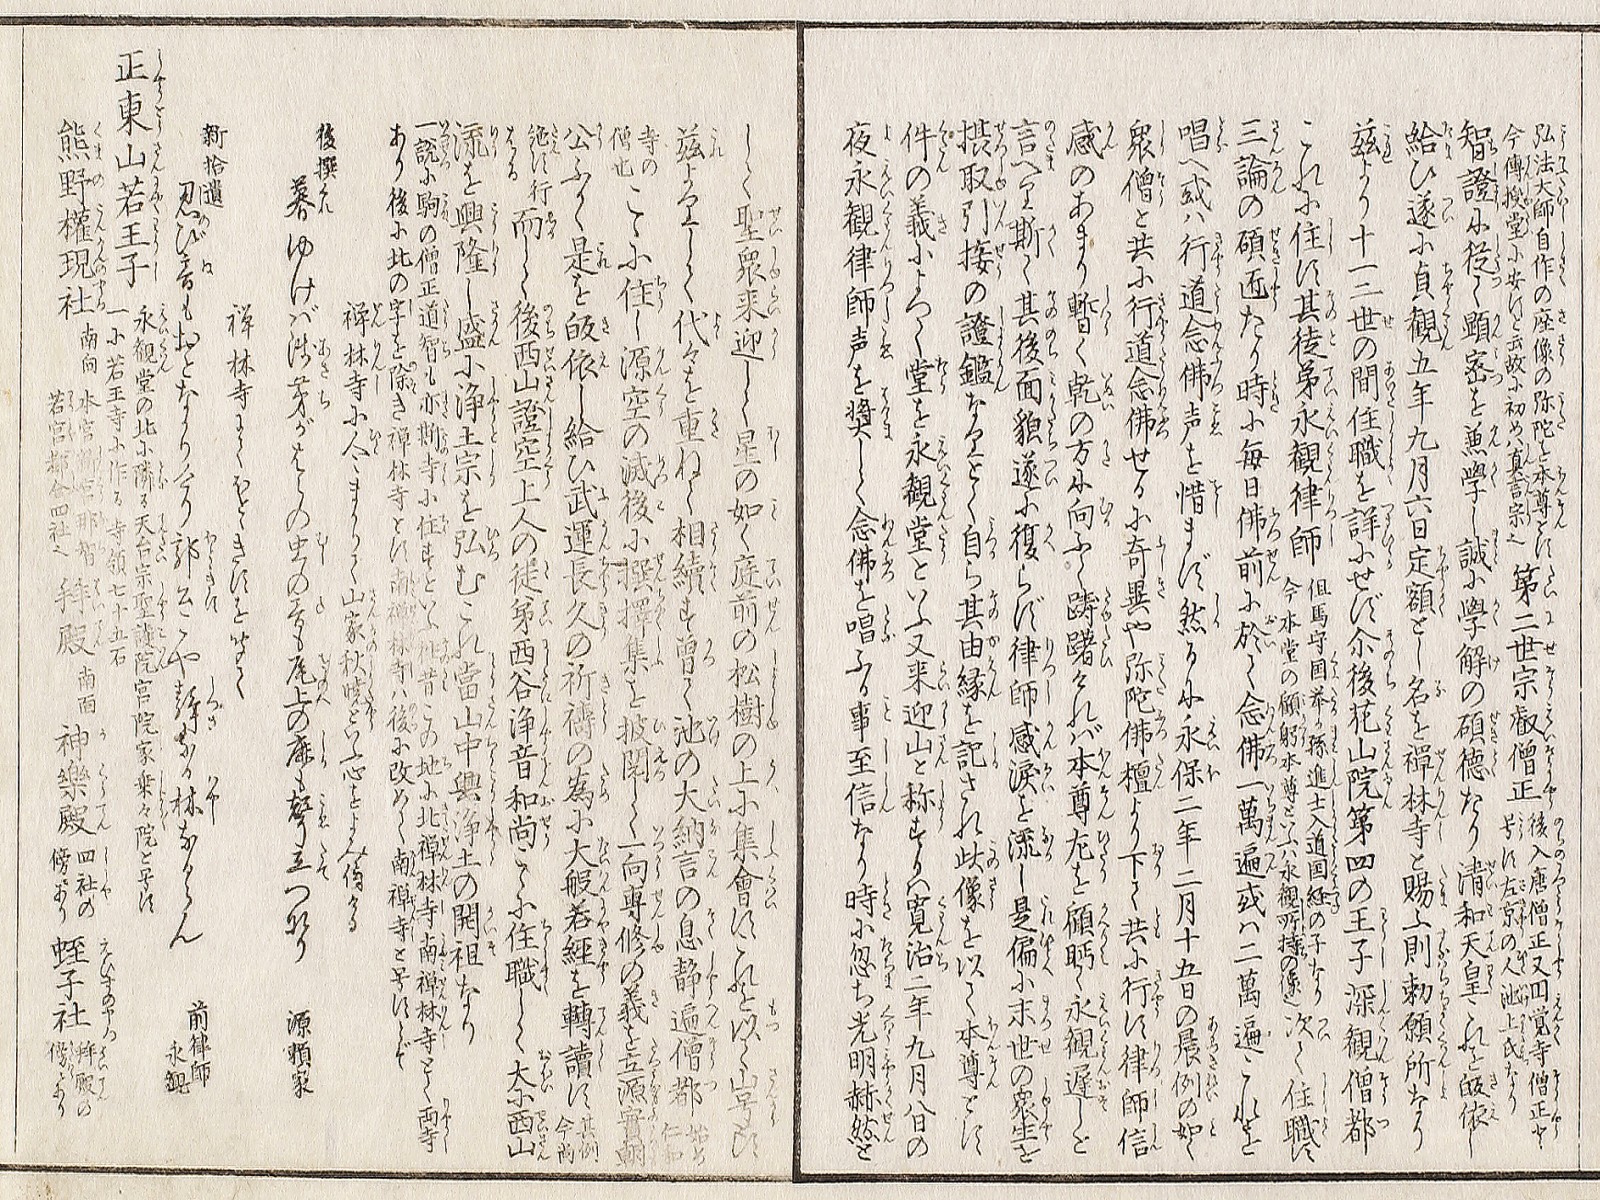 弘法大師自作の座像の弥陀を本尊とす
今傳授堂に安ずと云故に初めハ真言宗也 第二世宗叡僧正 後入唐僧正又円覚寺僧正と
号す左京の人池上氏なり
智證に従て顕密を兼學し誠に學解の碩徳たり清和天皇これを皈依し
給ひ遂に貞観五年九月六日定額とし名を禪林寺と賜ふ則勅願所なり
茲より十一二世の間住職を詳にせず尒後花山院第四の王子深観僧都
これに住す其徒弟永観律師 但馬守国挙の孫進士入道国経の子なり
今本堂の顧躬本尊といふハ永観所持の像也 次で住職す
三論の碩匠たり時に毎日佛前に於て念佛一萬遍或ハ二萬遍これを
唱へ或ハ行道念佛声を惜まず然るに永保二年二月十五日の晨例の如く
衆僧と共に行道念佛せるに奇異や弥陀佛檀より下て共に行す律師信
感のあまり暫く乾の方に向ふて躊躇なれバ本尊左を顧眄て永観遅しと
言へり斯て其後面貌遂に復らず律師感涙を流し是偏に末世の衆生を
摂取引接の證鑑なりとて自ら其由縁を記され此像を以て本尊とす
件の義によつて堂を永観堂といふ又来迎山と称するハ寛治二年九月八日の
夜永観律師声を奨して念佛を唱ふる事至信なり時に忽ち光明赫然と
して聖衆来迎して星の如く庭前の松樹の上に集會すこれを以て山号とす
茲よりして代々を重ねて相續す曽て池の大納言の息静遍僧都 始め仁和
寺の僧也 こゝに住し源空の滅後に撰擇集を披閲して一向専修の義を立源實朝
公ふかく是を皈依し給ひ武運長久の祈禱の為に大般若経を轉讀す 其例今尚
絶ず行はる 而して後西山證空上人の徒弟西谷浄音和尚こゝに住職して大に西山
流を興隆し盛に浄土宗を弘むこれ當山中興浄土の開祖なり
一説に駒の僧正道智も亦斯寺に住すといへり昔この地に北禅林寺南禅林寺とて両寺
あり後に北の字を除き禅林寺とす南禅林寺ハ後に改めて南禅寺と号すとぞ
禅林寺に人々まかりて山家秋晩といふ心をよみ侍ける
後撰 暮ゆけバ浅茅がはらの虫の音も尾上の鹿も声立つなり 源頼家
禅林寺にてほとゝぎすをきゝて
新拾遺 忍び音もおとなりけり郭公こや静なる林なるらん 前律師永観
正東山若王子 永観堂の北に隣る天台宗聖護院宮院家乗々院と号す
一に若王寺に作る 寺領七十五石
熊野權現社 南向 本宮新宮那智
若宮都合四社也 拝殿 南面 神樂殿 四社の
傍にあり 蛭子社 拝殿の
傍にあり